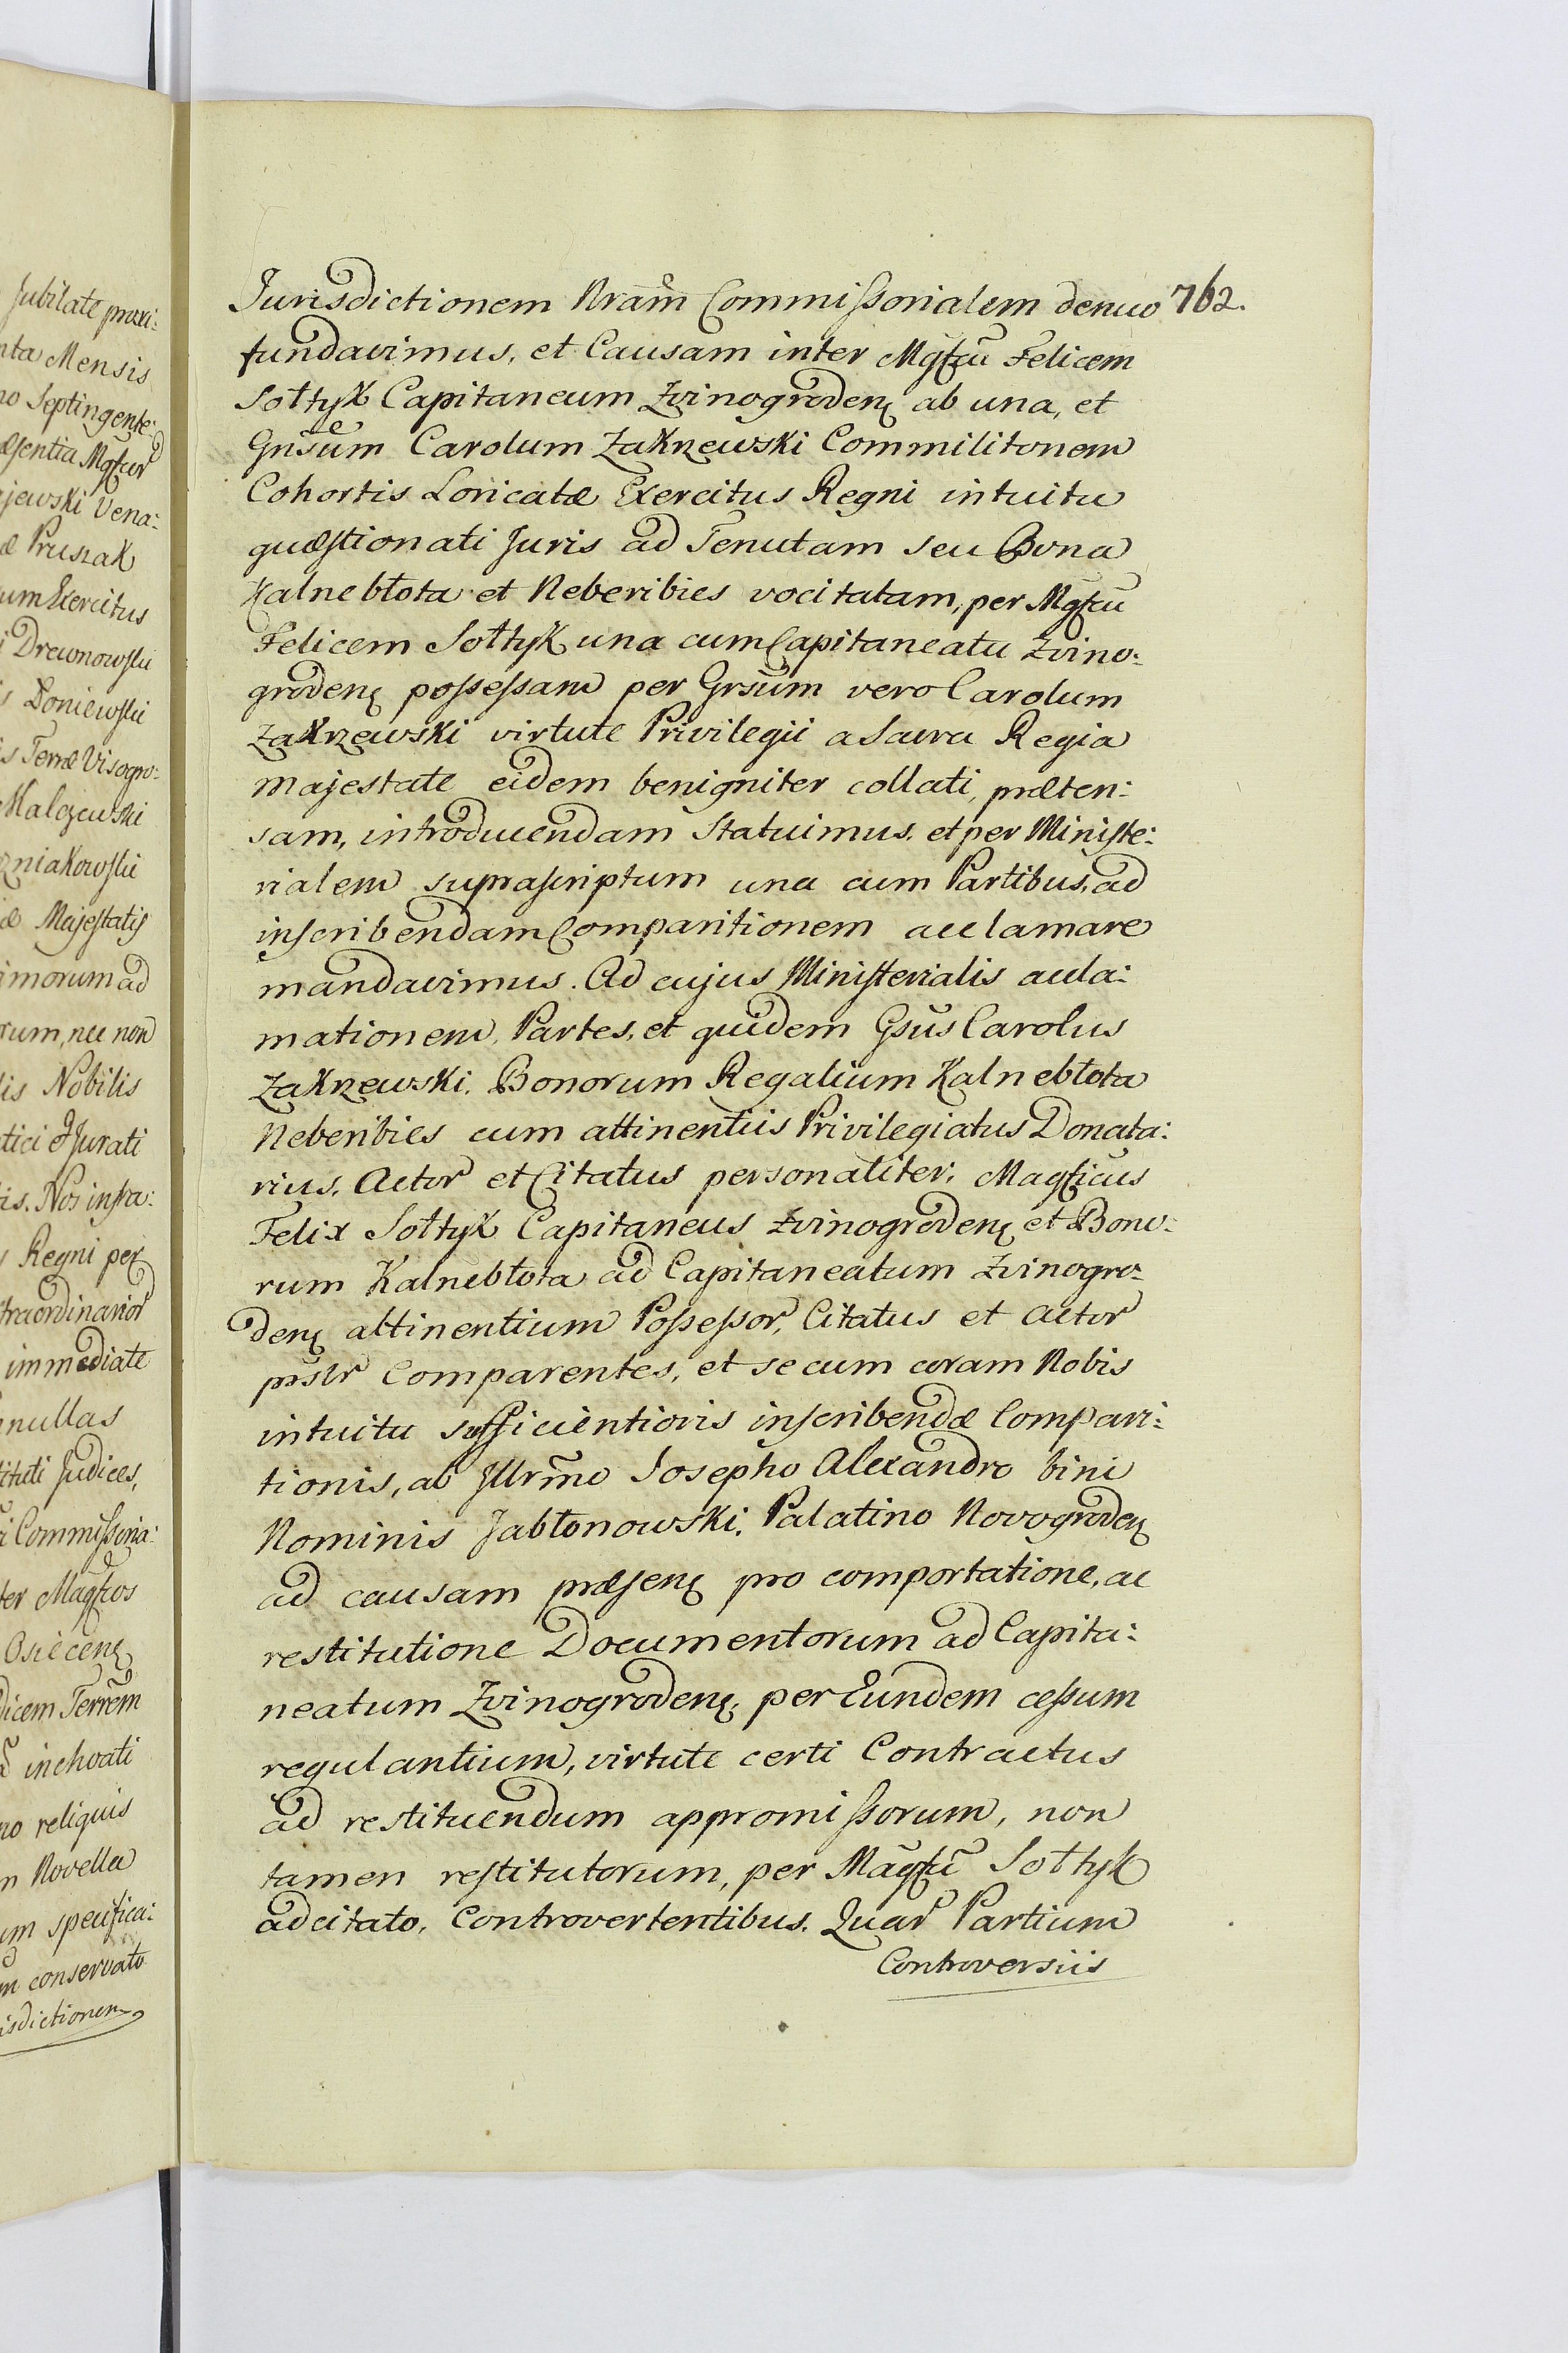 Jurisdictionem Nram̃ Commissorialem denuo 762.
fundavimus, et Causam inter Mgfcũ Felicem
Sołtyk Capitaneum Zvinogroden̄ ab una, et
Gnsũm Carolum Zakrzewski Commilitonem
Cohortis Loricatæ Exercitus Regni intuitu
quæstionati Juris ad Tenutam seu Bona
Kalnebłota et Neberibies vocitatam, per Mgfcũ
Felicem Sołtyk una cum Capitaneatu Zvino:
groden̄ possessam per Grsũm vero Carolum
Zakrzewski virtute Privilegii a Sacra Regia
Majestate eidem benigniter collati, præten:
sam, introducendam Statuimus. et per Ministe:
rialem suprascriptum una cum Partibus, ad
inscribendam Comparitionem acclamare
mandavimus. Ad cujus Ministerialis accla:
mationem, Partes, et quidem Gsũs Carolus
Zakrzewski. Bonorum Regalium Kalnebłota
Neberibies cum attinentiis Privilegiatus Donata:
rius, Actor et Citatus personaliter; Magficus
Felix Sołtyk Capitaneus Zvinogroden̄ et Bono:
rum Kalnebłota ad Capitaneatum Zvinogro-
den̄ attinentium Possessor, Citatus et Actor
pnslr Comparentes, et secum coram Nobis
intuitu sufficientioris inscribendæ Compari:
tionis, ab Jllrm̃o Josepho Alexandro bini
Nominis Jabłonowski, Palatino Novogroden̄
ad causam præsen̄ pro comportatione, ac
restitutione Documentorum ad Capita:
neatum Zvinogroden̄, per Eundem cessum
regulantium, virtute certi Contractus
ad restituendum appromissorum, non
tamen restitutorum, per Magfcũ Sołtyk
adcitato, Controvertentibus. Quar Partium
Controversiis
Jubilate proxi:
nta Mensis
no Septingente:
æsentia Mgfcor
jewski Vena:
æ Pruszak
um Exercitus
i Drewnowski
s Doniewski
is Terræ Visogro:
Malczewski
zniakowski
æ Majestatis
imorum ad
rum, nec non
lis Nobilis
tici et Jurati
is. Nos infra:
Regni per
traordinarior
immediate
nullas
tituti Judices,
i Commissoria:
ter Magfcos
Osiecen̄
dicem Terrem̃
inchoati
no reliquis
n Novella
um specifica:
m conservato
isdictionem